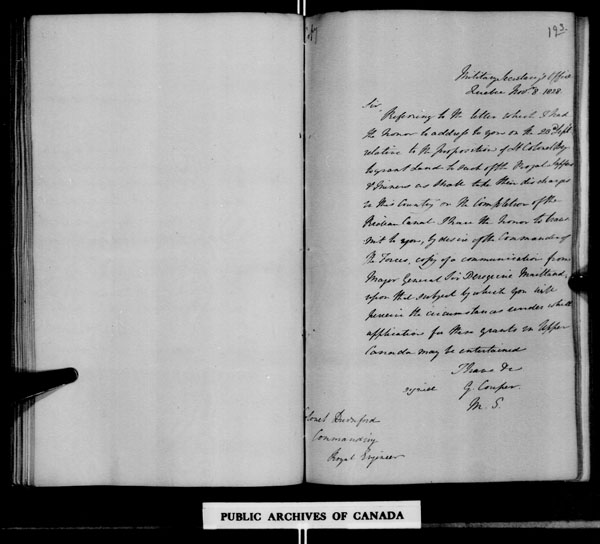 193.
Military Secretary's Office
Quebec Nov. 8 1828
Sir,
Referring to the letter which I had
the honor to address to you on the 28th Sept
relative to the proposition of Lt Colonel By
to grant Land to such of the Royal Sappers
& Miners as shall take their discharges
in this Country on the Completion of the
Rideau Canal I have the honor to trans
mit to you, by desire of the Commander of
the Forces, copy of a communication from
Major General Sir Peregrine Maitland,
upon that subject by which you will
perceive the circumstances under which
application for these grants in Upper
Canada may be entertained
I have &c
signed G. Couper.
M. S.
Colonel Durnford
Commanding
Royal Engineer
PUBLIC ARCHIVES OF CANADA